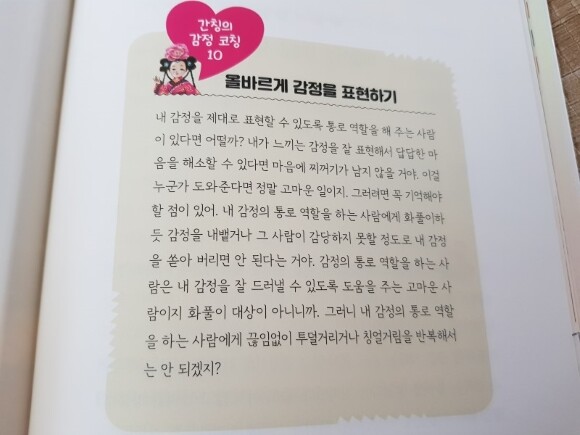 간칭의
감정 코칭
10
올바르게 감정을 표현하기
내 감정을 제대로 표현할 수 있도록 통로 역할을 해 주는 사람
이 있다면 어떨까? 내가 느끼는 감정을 잘 표현해서 답답한 마
음을 해소할 수 있다면 마음에 찌꺼기가 남지 않을 거야. 이걸
누군가 도와준다면 정말 고마운 일이지. 그러려면 꼭 기억해야
할 점이 있어. 내 감정의 통로 역할을 하는 사람에게 화풀이하
듯 감정을 내뱉거나 그 사람이 감당하지 못할 정도로 내 감정
을 쏟아 버리면 안 된다는 거야. 감정의 통로 역할을 하는 사
람은 내 감정을 잘 드러낼 수 있도록 도움을 주는 고마운 사
람이지 화풀이 대상이 아니니까. 그러니 내 감정의 통로 역할
을 하는 사람에게 끊임없이 투덜거리거나 칭얼거림을 반복해서
는 안 되겠지?